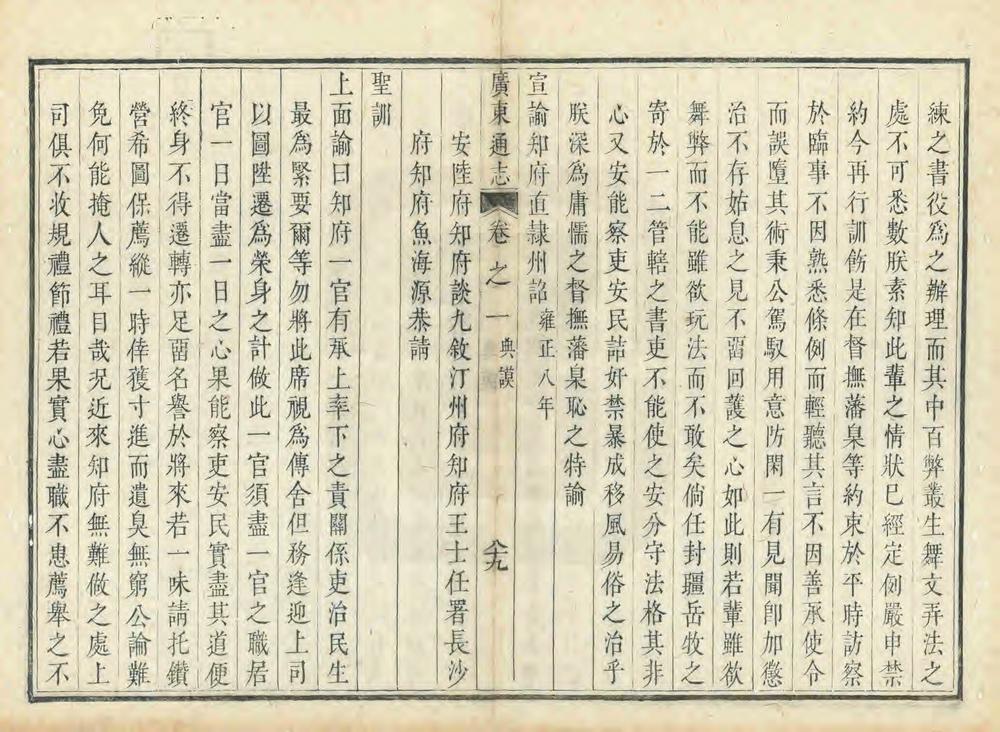 練之書役為之辦理而其中百弊叢生舞文弄法之
處不可悉數朕素知此輩之情狀已經定例嚴申禁
約今再行訓飭是在督撫藩臬等約束於平時訪察
於臨事不因熟悉條例而輕聽其言不因善承使令
而誤墮其術秉公駕馭用意防閑一有見聞卽加懲
治不存姑息之見不畱回護之心如此則若輩雖欲
舞弊而不能雖欲玩法而不敢矣倘任封疆岳牧之
寄於一二管轄之書吏不能使之安分守法格其非
心又安能察吏安民詰奸禁暴成移風易俗之治乎
朕深為庸懦之督撫藩臬恥之特諭
宣諭知府直隷州詔雍正八年
廣東通志 卷之一 典謨 八九
安陸府知府談九敘汀州府知府王士任署長沙
府知府魚海源恭請
聖訓
上面諭曰知府一官有承上率下之責關係吏治民生
最為緊要爾等勿將此席視為傳舍但務逢迎上司
以圖陞遷為榮身之計做此一官須盡一官之職居
官一日當盡一日之心果能察吏安民實盡其道便
終身不得遷轉亦足畱名譽於將來若一味請托鑽
營希圖保薦縱一時倖獲寸進而遺臭無窮公論難
免何能掩人之耳目哉况近來知府無難做之處上
司俱不收規禮節禮若果實心盡職不患薦舉之不